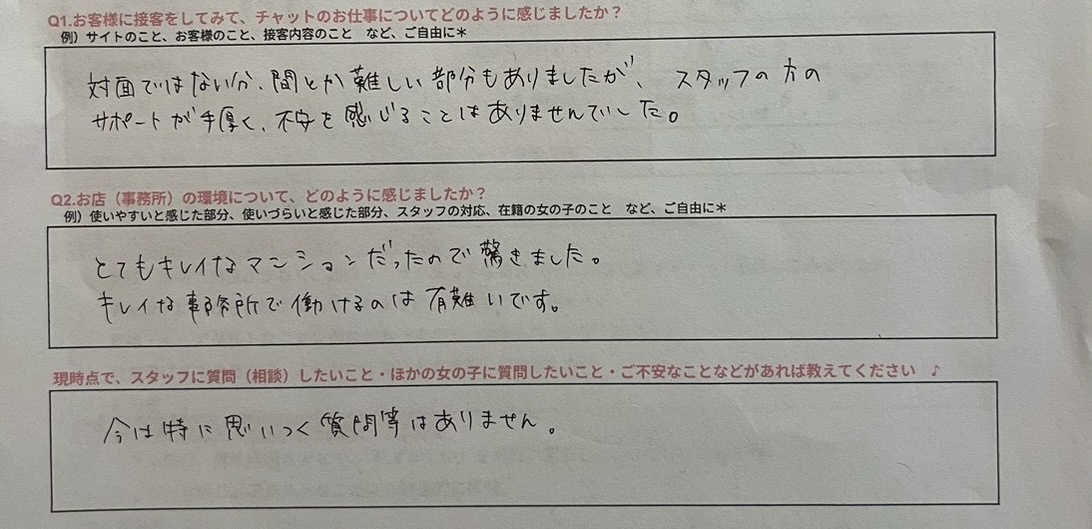 Q1.お客様に接客をしてみて、チャットのお仕事についてどのように感じましたか？
例）サイトのこと、お客様のこと、接客内容のこと　など、ご自由に＊
対面ではない分、間とか難しい部分もありましたが、スタッフの方の
サポートが手厚く、不安を感じることはありませんでした。
Q2.お店（事務所）の環境について、どのように感じましたか？
例）使いやすいと感じた部分、使いづらいと感じた部分、スタッフの対応、在籍の女の子のこと　など、ご自由に＊
とてもキレイなマンションだったので驚きました。
キレイな事務所で働けるのは有難いです。
現時点で、スタッフに質問（相談）したいこと・ほかの女の子に質問したいこと・ご不安なことなどがあれば教えてください　♪
今は特に思いつく質問等はありません。